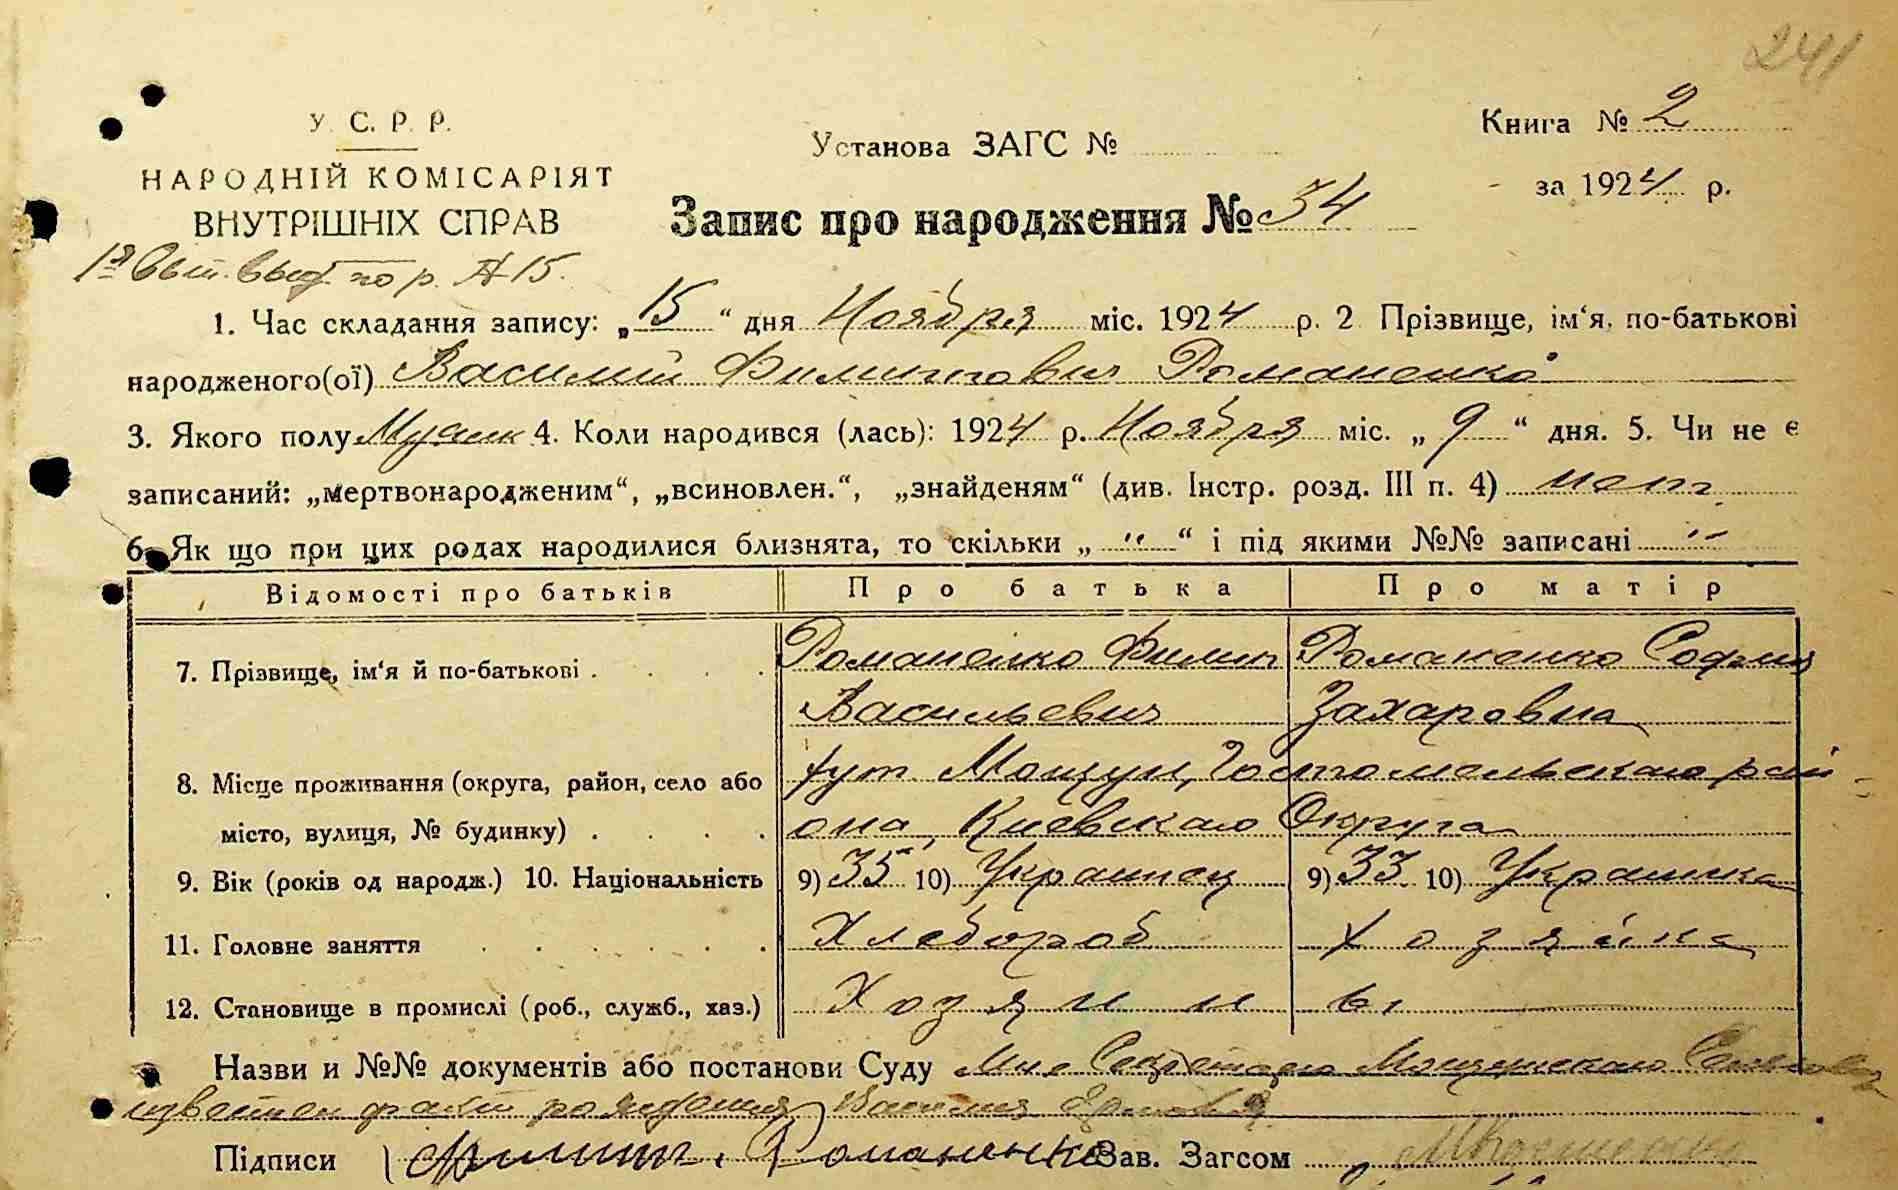 241
У. С. Р. Р.
НАРОДНІЙ КОМІСАРІЯТ
ВНУТРІШНІХ СПРАВ
Установа ЗАГС №
Книга № 2
за 1924 р.
Запис про народження № 34
15.
1. Час складання запису: „15“ дня Ноября міс. 1924 р. 2 Прізвище, ім‘я, по-батькові
народженого(ої) Василий Филиппович Романенко
3. Якого полу Мужск 4. Коли народився (лась): 1924 р. Ноября міс. „9“ дня. 5. Чи не є
записаний: „мертвонародженим“, „всиновлен.“, „знайденям“ (див. Інстр. розд. III п. 4) нет
6. Як що при цих родах народилися близнята, то скільки „ " “ і під якими №№ записані "
Відомості про батьків Про батька Про матір
7. Прізвище, ім‘я й по-батькові . . . . Романенко Филип Романенко София
Васильевич Захаровна
8. Місце проживання (округа, район, село або хут. Мощун, Гостомельскаго рай-
місто, вулиця, № будинку) . . . . она, Киевскаго Округа
9. Вік (років од народж.) 10. Національність 9) 35 10) Украинец 9) 33 10) Украинка
11. Головне заняття . . . . . . Хлебороб Хозяйка
12. Становище в промислі (роб., служб., хаз.) Хозяин
Назви и №№ документів або постанови Суду Мне Секретарю Мощунскаго
известен факт рождения Василия
Підписи Филипп Романенко Зав. Загсом